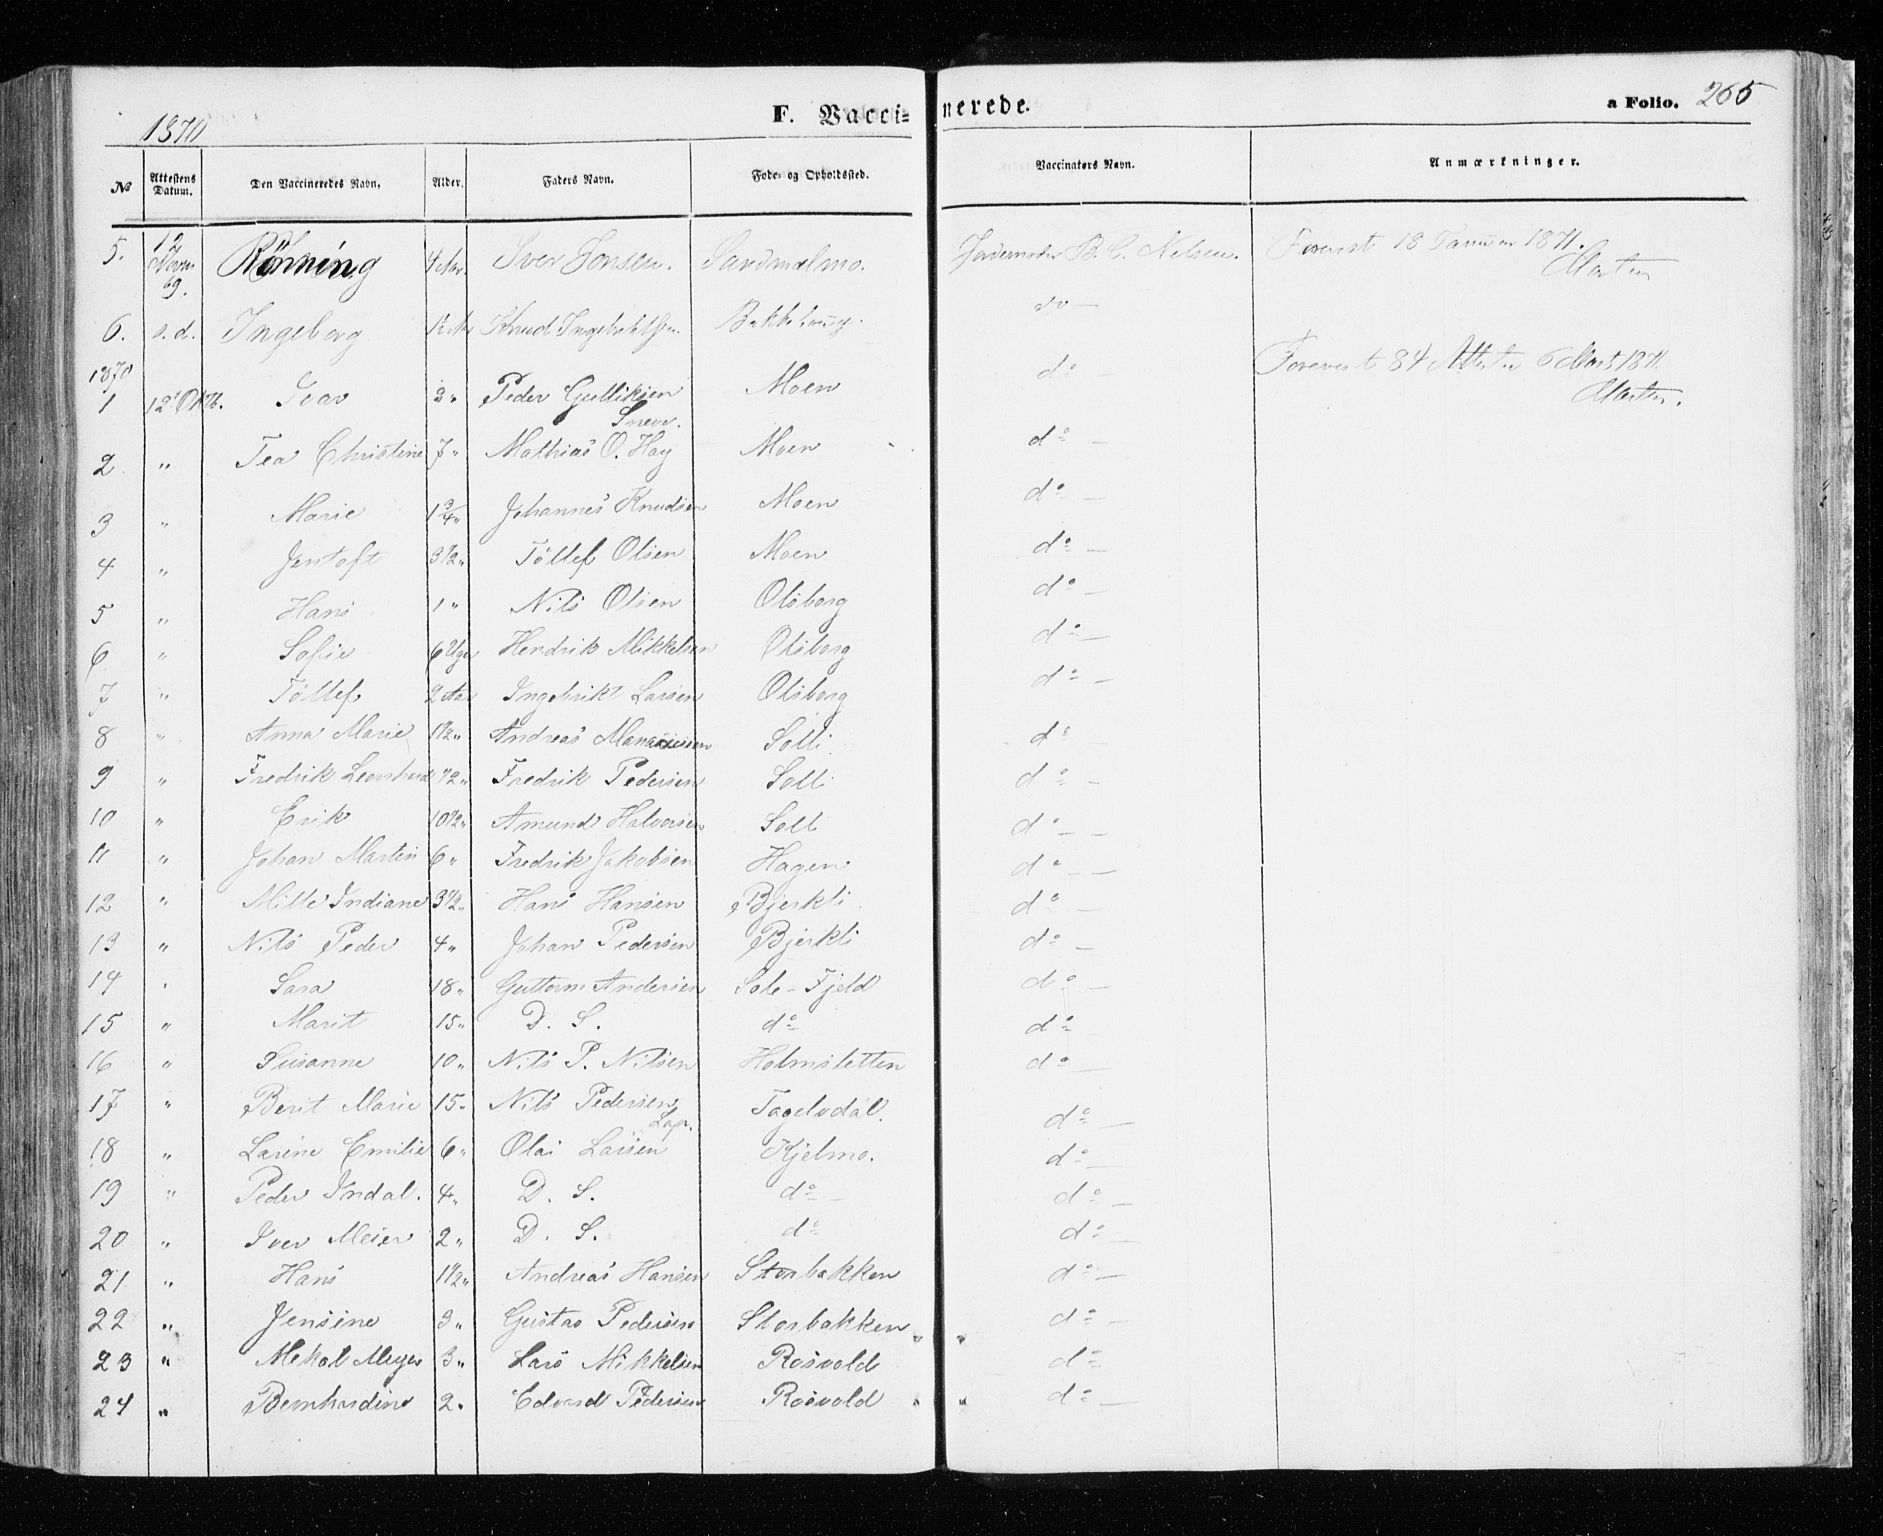 1870 F. Vaccinerede. a Folio. 265
No Attestens Datum. Den Vaccineredes Navn, Alder. Faders Navn. Føde- og Opholdssted. Vaccinators Navn. Anmærkninger.
5. 12 Novbr 69. Rønning 4 Aar Iver Jonsen. Sandmælmo. Jordemoder B. C. Nilsen. Forevist 18 Januar 1871.
6. s. d. Ingeborg Knud Ingebrigtsen. Bakkehaug. do —
1870 Forevist 84 Attester 6 Marts 1871.
1 12' Oktb. Ivar 2 " Peder Gulliksen Moen do —
2 " Tea Christine 7 " Mathias O. Hay Moen do —
3 " Marie 1 3/4 " Johannes Knudsen Moen do —
4 " Jentoft 3 1/2 " Tøllef Olsen Moen do —
5 " Hans 1 " Nils Olsen Olsborg do —
6 " Sofie 6 Uger Hendrik Mikkelsen Olsborg do —
7 " Tøllef 2 Aar Ingebrikt Larsen Olsborg do —
8 " Anna Marie 1 1/2 " Andreas Manassessen Solli do
9 " Fredrik Leonhard 1/2 " Fredrik Pedersen Solli do —
10 " Erik 10 1/2 " Amund Halvorsen Solli do — —
11 " Johan Martin 6 " Fredrik Jakobsen Hagen do — —
12 " Mille Indiane 3 1/2 " Hans Hansen Bjerkli do —
13 " Nils Peder 4 " Johan Pedersen Bjerkli do —
14 " Sara 18 " Guttorm Andersen Sole-Fjeld do —
15 " Marit 15 " D. S. do do —
16 " Susanne 10 " Nils P. Nilsen Holmsletten do —
17 " Berit Marie 15 " Nils Pedersen Lap. Tagelvdal. do —
18 " Larine Emilie 6 " Olai Larsen Kjelmo. do —
19 " Peder Indal. 4 " D. S. do — do —
20 " Iver Meier 2 " D. S. do do —
21 " Hans 1 1/2 " Andreas Hansen Storbakken do —
22 " Jensine 3 " Gustav Pedersen Storbakken do —
23 " Mekal Meyer 3 " Lars Mikkelsen Rosvold do
24 " Bernhardine 2 " Edvard Pedersen Rosvold do —